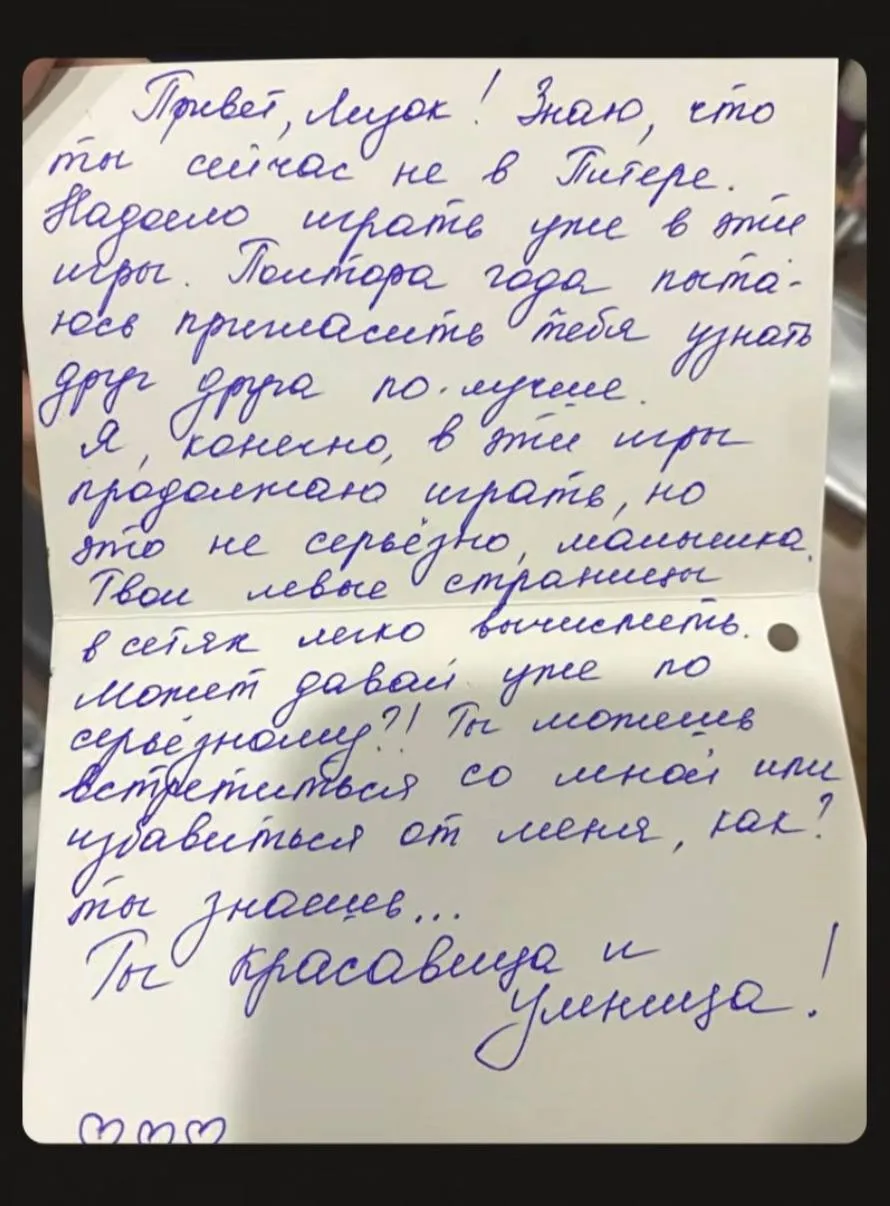 Привет, Лизок! Знаю, что
ты сейчас не в Питере.
Надоело играть уже в эти
игры. Полтора года пыта-
юсь пригласить тебя узнать
друг друга по-лучше.
Я, конечно, в эти игры
продолжаю играть, но
это не серьёзно, малышка.
Твои левые страницы
в сетях легко вычислить.
Может давай уже по
серьёзному?! Ты можешь
встретиться со мной или
избавиться от меня, как?
ты знаешь...
Ты красавица и
умница!